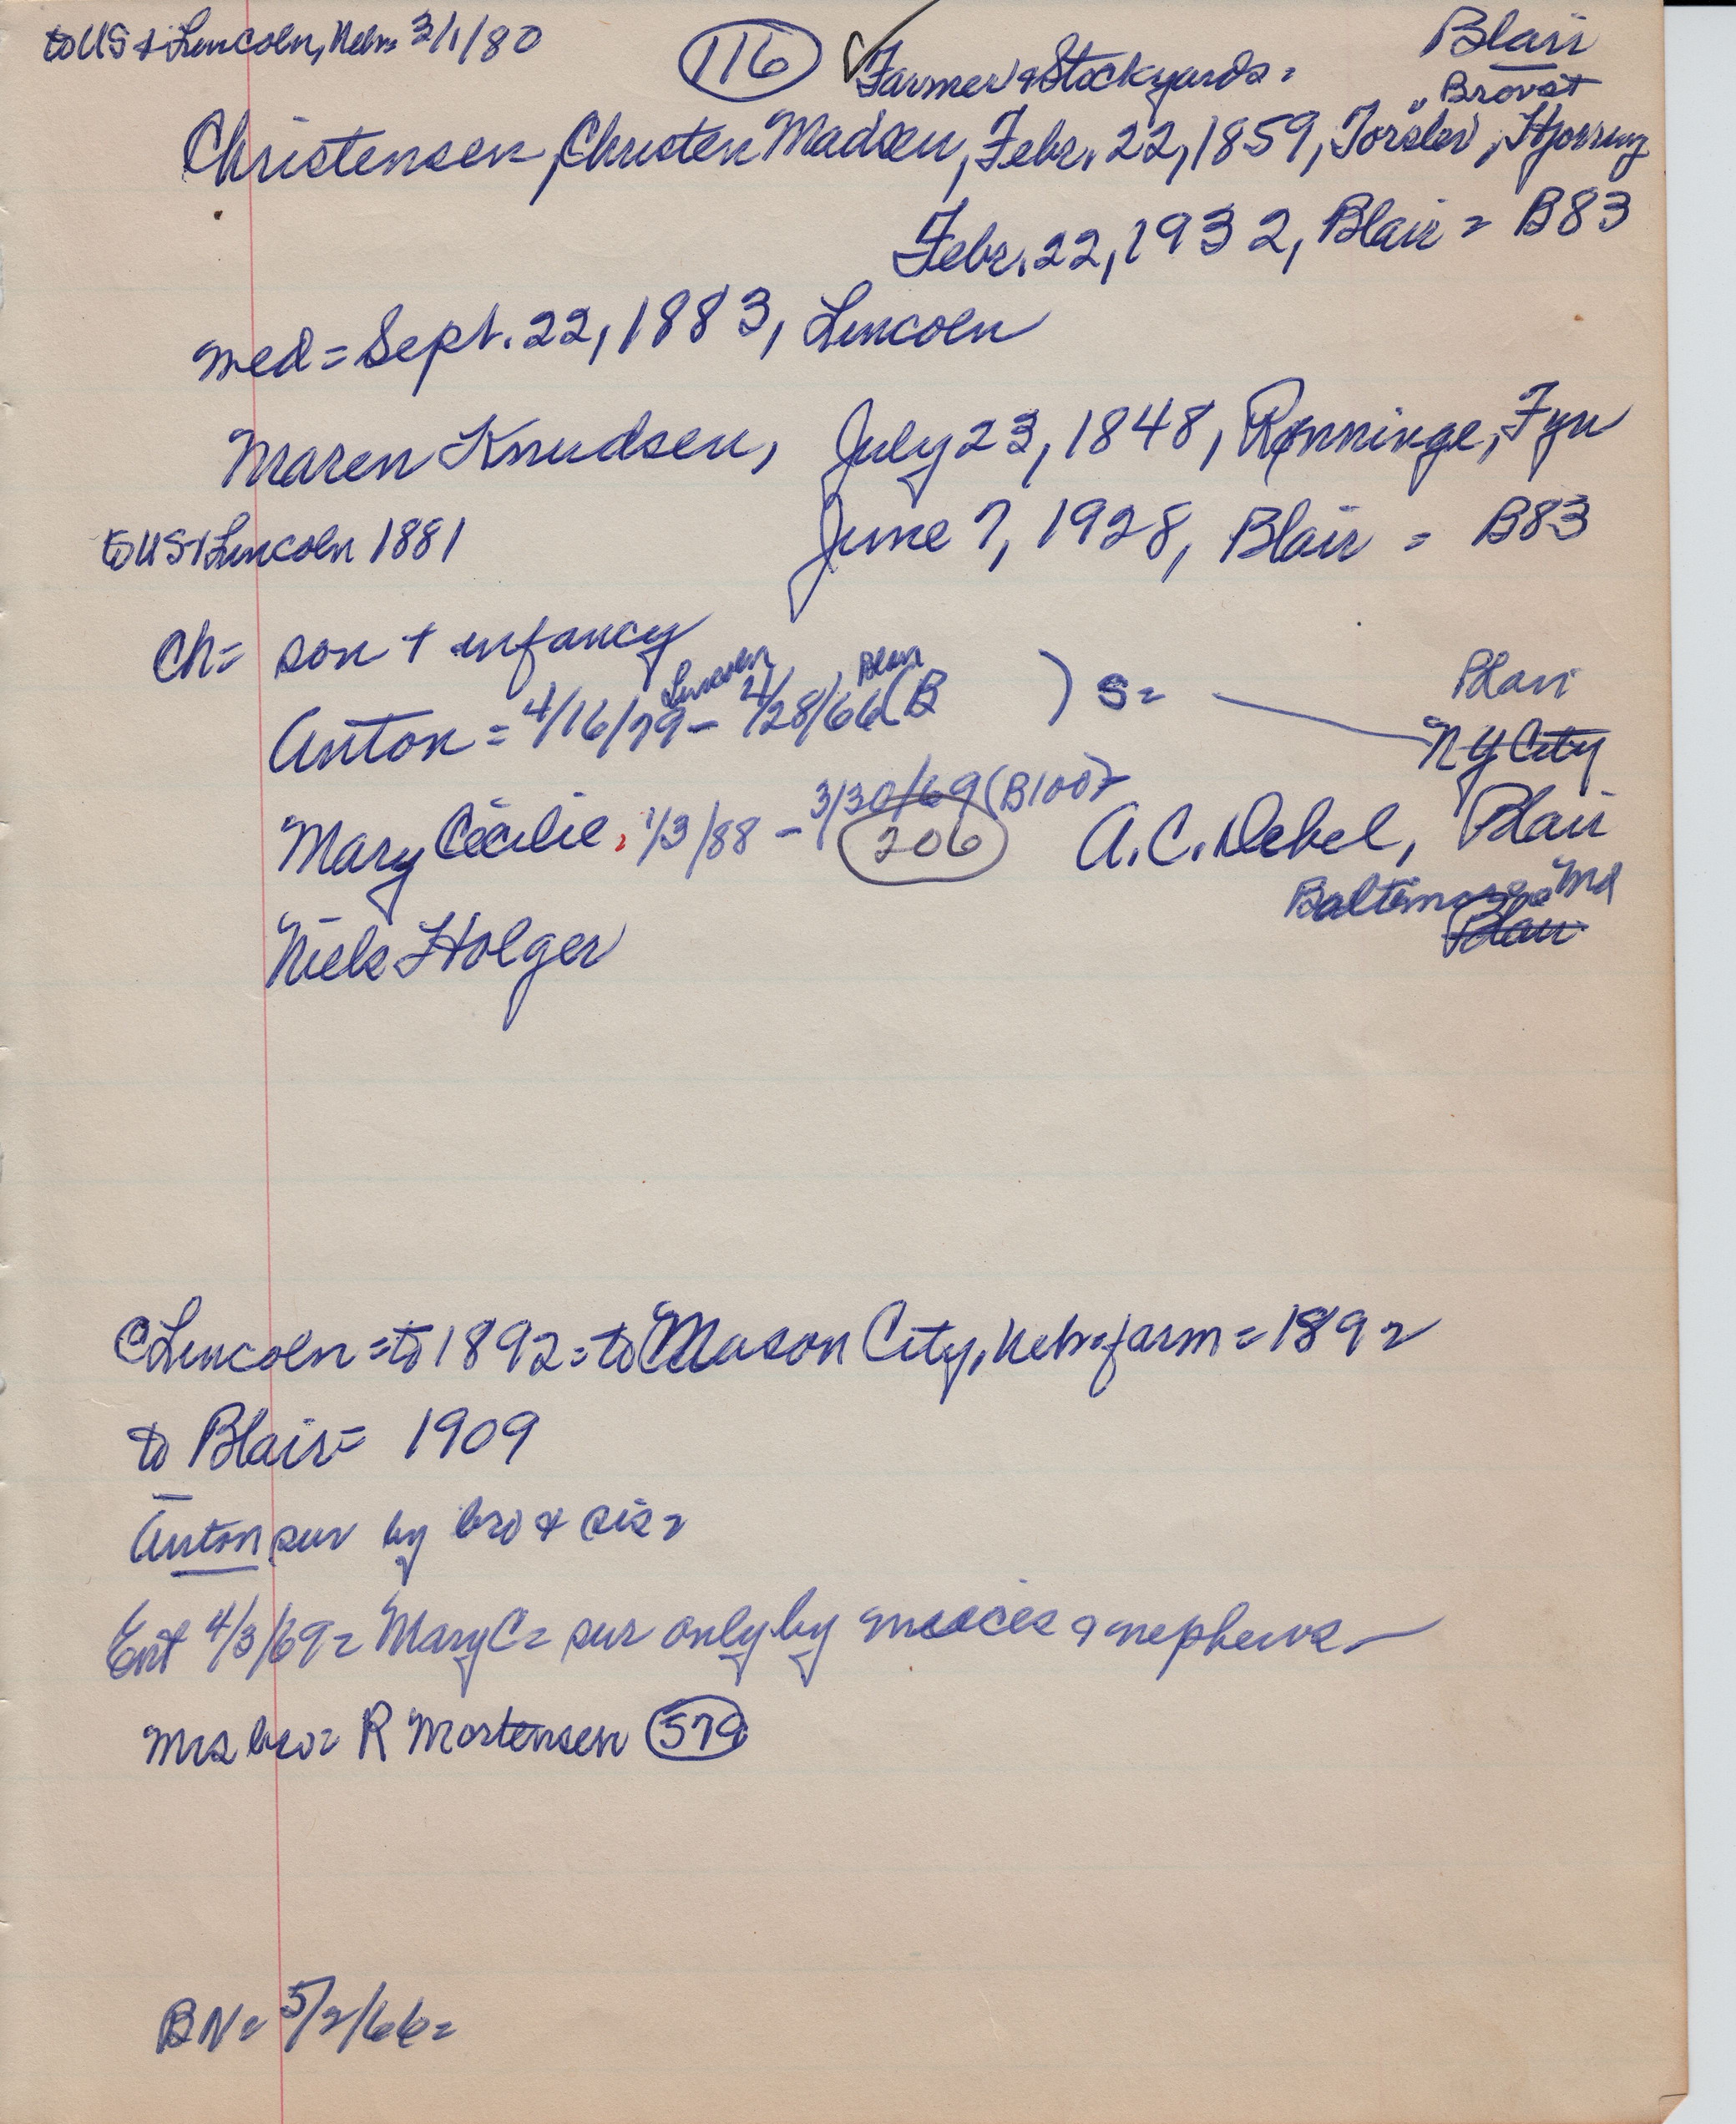 to US & Lincoln, Nebr= 3/1/80
116
Farmer & Stockyards=
Blair
" Brovst
Christensen, Christen Madsen, Febr. 22, 1859, Torslev, Hjorring
Febr. 22, 1932, Blair = B83
med = Sept. 22, 1883, Lincoln
Maren Knudsen, July 23, 1848, Rønninge, Fyn
to US & Lincoln 1881
June 7, 1928, Blair = B83
Ch= son + infancy
Lincoln Blair
Anton = 4/16/79 - 4/28/66 (B ) S= Blair
NY City
Mary Cecilie, 1/3/88 - 3/30/69 (B100)
206 A.C. Debel, Blair
Baltimore Md
Blair
Niels Holger
Lincoln = to 1892 = to Mason City, Neb = farm = 1892
to Blair = 1909
Anton sur by bro & sis =
Ent 4/3/69 = Mary C = sur only by nieces & nephews
Mrs bro = R Mortensen 579
BN = 5/2/66 =